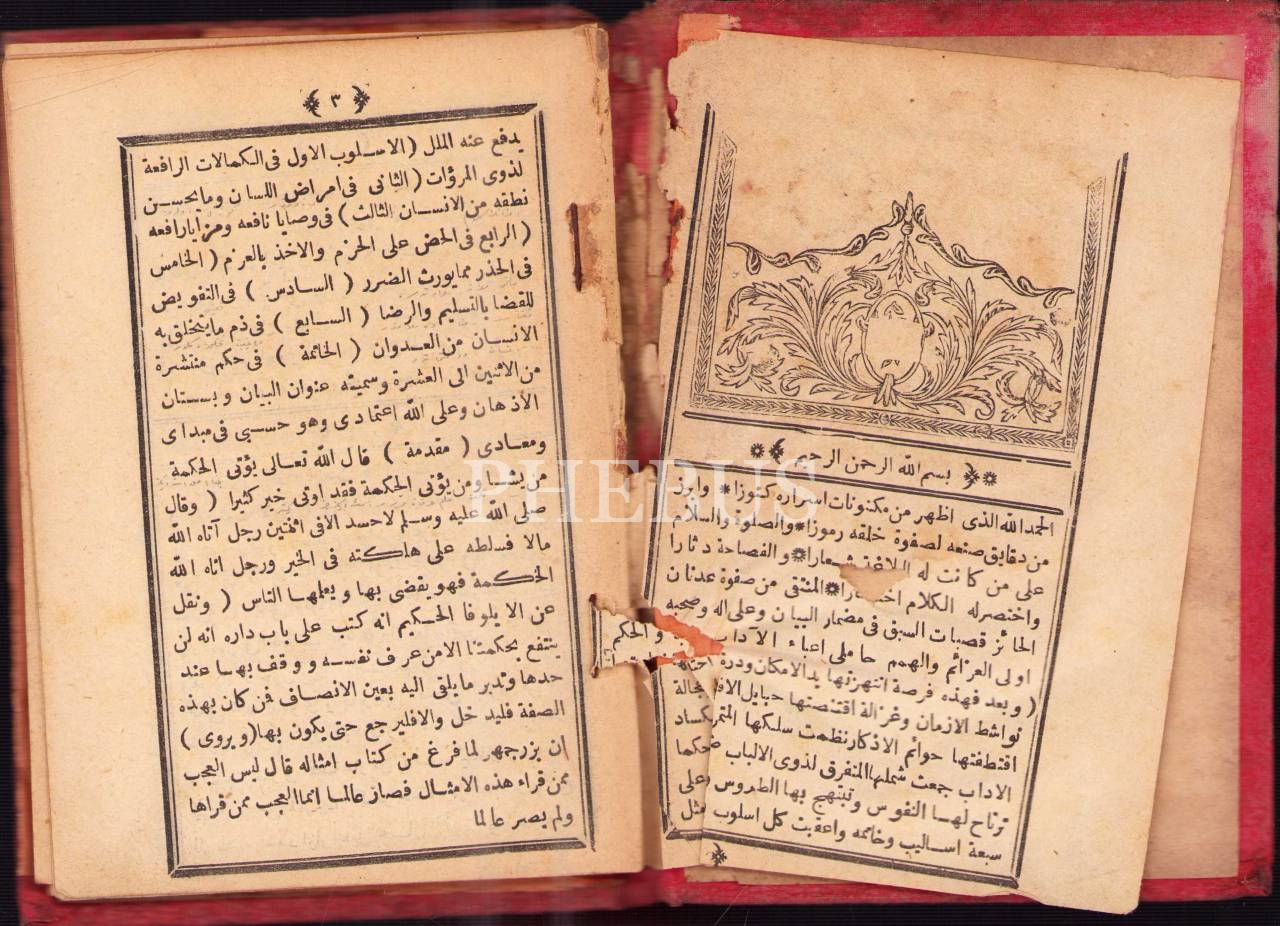 بسم الله الرحمن الرحيم
الحمد الله الذى اظهر من مكنونات اسراره كنوزا * وابرز
من دقايق صنعه لصفوة خلقه رموزا * والصلوة والسلام
على من كانت له البلاغة شعارا * والفصاحة دثارا
واختصر له الكلام * المنتقى من صفوة عدنان
الحائز قصبات السبق فى مضمار البيان وعلى اله وصحبه
اولى العزائم والهمم حاملى اعباء الآداب والحكم
( وبعد فهذه فرصة انتهزتها يد الامكان ودرة
نواشط الازمان وغزالة اقتنصتها حبايل
اقتطفتها حوائم الاذكار نظمت سلكها
الاداب جمعت شملها المتفرق لذوى الالباب
ترتاح لهــا النفوس وتبتهج بها الطروس وعلى
سبعة اســاليب وخاتمه واعقبت كل اسلوب مثل
٣
يدفع عنه الملل (الاســلوب الاول فى الكمالات الرافعة
لذوى المرؤات (الثانى فى امراض اللسان ومايحســن
نطقه من الانســان الثالث) فى وصايا نافعه ومزايا رافعه
( الرابع فى الحض على الحزم والاخذ بالعزم ( الخامس
فى الحذر مما يورث الضرر ( الســادس ) فى التفويض
للقضا بالتسليم والرضا ( الســابع ) فى ذم مايتخلق به
الانســان من العــدوان ( الخاتمة ) فى حكم منتشرة
من الاثنين الى العشرة وسميته عنوان البيان وبســتان
الأذهان وعلى الله اعتمادى وهو حسبى فى مبداى
ومعــادى ( مقدمة ) قال الله تعــالى يؤتى الحكمة
من يشــا ومن يؤتى الحكمة فقد اوتى خير كثيرا ( وقال
صلى الله عليه وسـلم لاحسد الافى اثنتين رجل آتاه الله
مالا فسلطه على هلكته فى الخير ورجل اتاه الله
الحكمة فهو يقضى بها ويعلمهـا الناس ( ونقل
عن الايلوفا الحـكيم انه كتب على باب داره انه لن
ينتفع بحكمتنا الامن عرف نفســه ووقف بهـا عند
حدها وتدبر مايلقى اليه بعين الانصــاف فمن كان بهذه
الصفة فليدخل والافليرجع حتى يكون بها (ويروى )
ان بزرجمهر لما فرغ من كتاب امثاله قال ليس العجب
ممن قراء هذه الامثــال فصار عالمــا انما العجب ممن قراها
ولم يصر عالما
PHEBUS